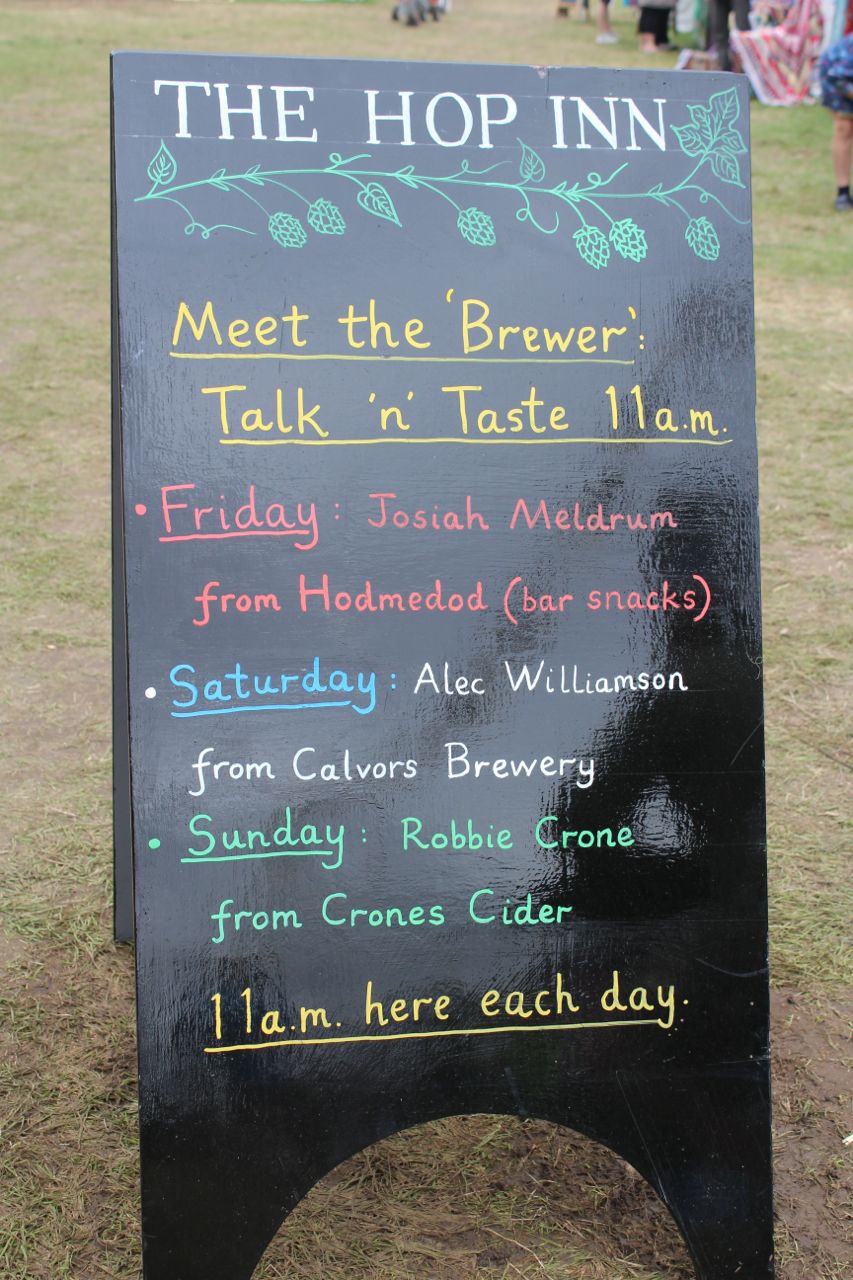 THE HOP INN
Meet the 'Brewer':
Talk 'n' Taste 11a.m.
• Friday: Josiah Meldrum
from Hodmedod (bar snacks)
• Saturday: Alec Williamson
from Calvors Brewery
• Sunday: Robbie Crone
from Crones Cider
11a.m. here each day.